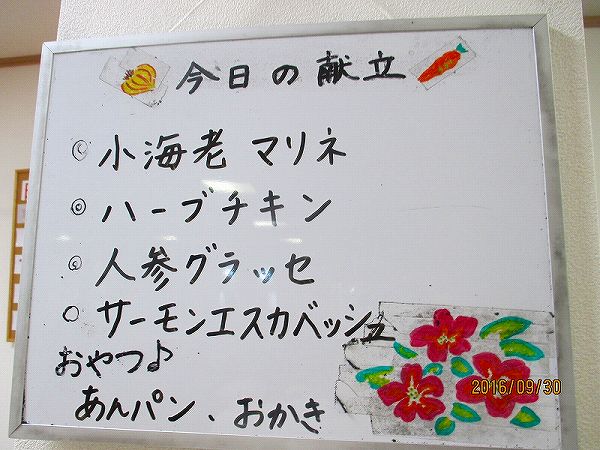 今日の献立
◎ 小海老 マリネ
◎ ハーブチキン
◎ 人参グラッセ
○ サーモンエスカベッシュ
おやつ♪
あんパン、おかき
2016/09/30